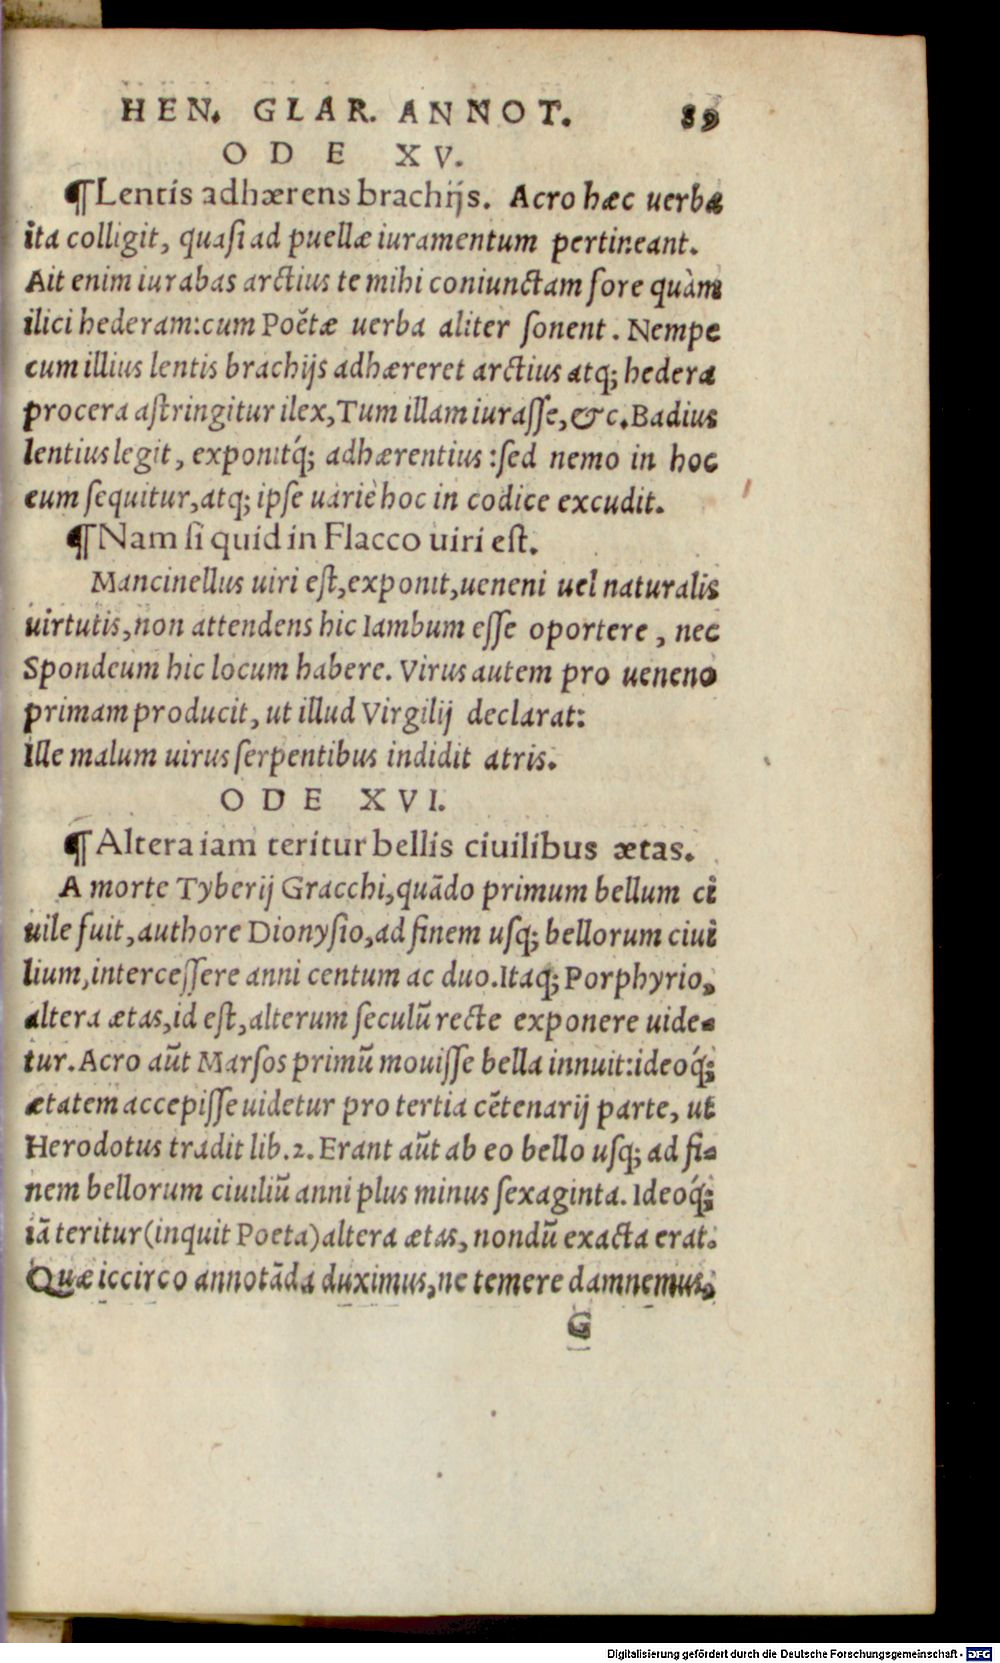 HEN. GLAR. ANNOT. 89
ODE XV.
¶Lentis adhærens brachijs. Acro hæc uerba
ita colligit, quasi ad puellæ iuramentum pertineant.
Ait enim iurabas arctius te mihi coniunctam fore quàm
ilici hederam:cum Poëtæ uerba aliter sonent. Nempe
cum illius lentis brachijs adhæreret arctius atq; hedera
procera astringitur ilex,Tum illam iurasse,&c.Badius
lentius legit, exponitq́; adhærentius:sed nemo in hoc
eum sequitur,atq; ipse uariè hoc in codice excudit.
¶Nam si quid in Flacco uiri est.
Mancinellus uiri est,exponit,ueneni uel naturalis
uirtutis,non attendens hic Iambum esse oportere, nec
Spondeum hic locum habere. Virus autem pro ueneno
primam producit, ut illud Virgilij declarat:
Ille malum uirus serpentibus indidit atris.
ODE XVI.
¶Altera iam teritur bellis ciuilibus ætas.
A morte Tyberij Gracchi,quãdo primum bellum ci
uile fuit,authore Dionysio,ad finem usq; bellorum ciui
lium,intercessere anni centum ac duo.Itaq; Porphyrio,
altera ætas,id est,alterum seculũ recte exponere uide-
tur.Acro aũt Marsos primũ mouisse bella innuit:ideoq́;
ætatem accepisse uidetur pro tertia cẽtenarij parte, ut
Herodotus tradit lib.2. Erant aũt ab eo bello usq; ad fi-
nem bellorum ciuiliũ anni plus minus sexaginta. Ideoq́;
iã teritur(inquit Poeta)altera ætas, nondũ exacta erat.
Quæ iccirco annotãda duximus,ne temere damnemus,
G
Digitalisierung gefördert durch die Deutsche Forschungsgemeinschaft - DFG